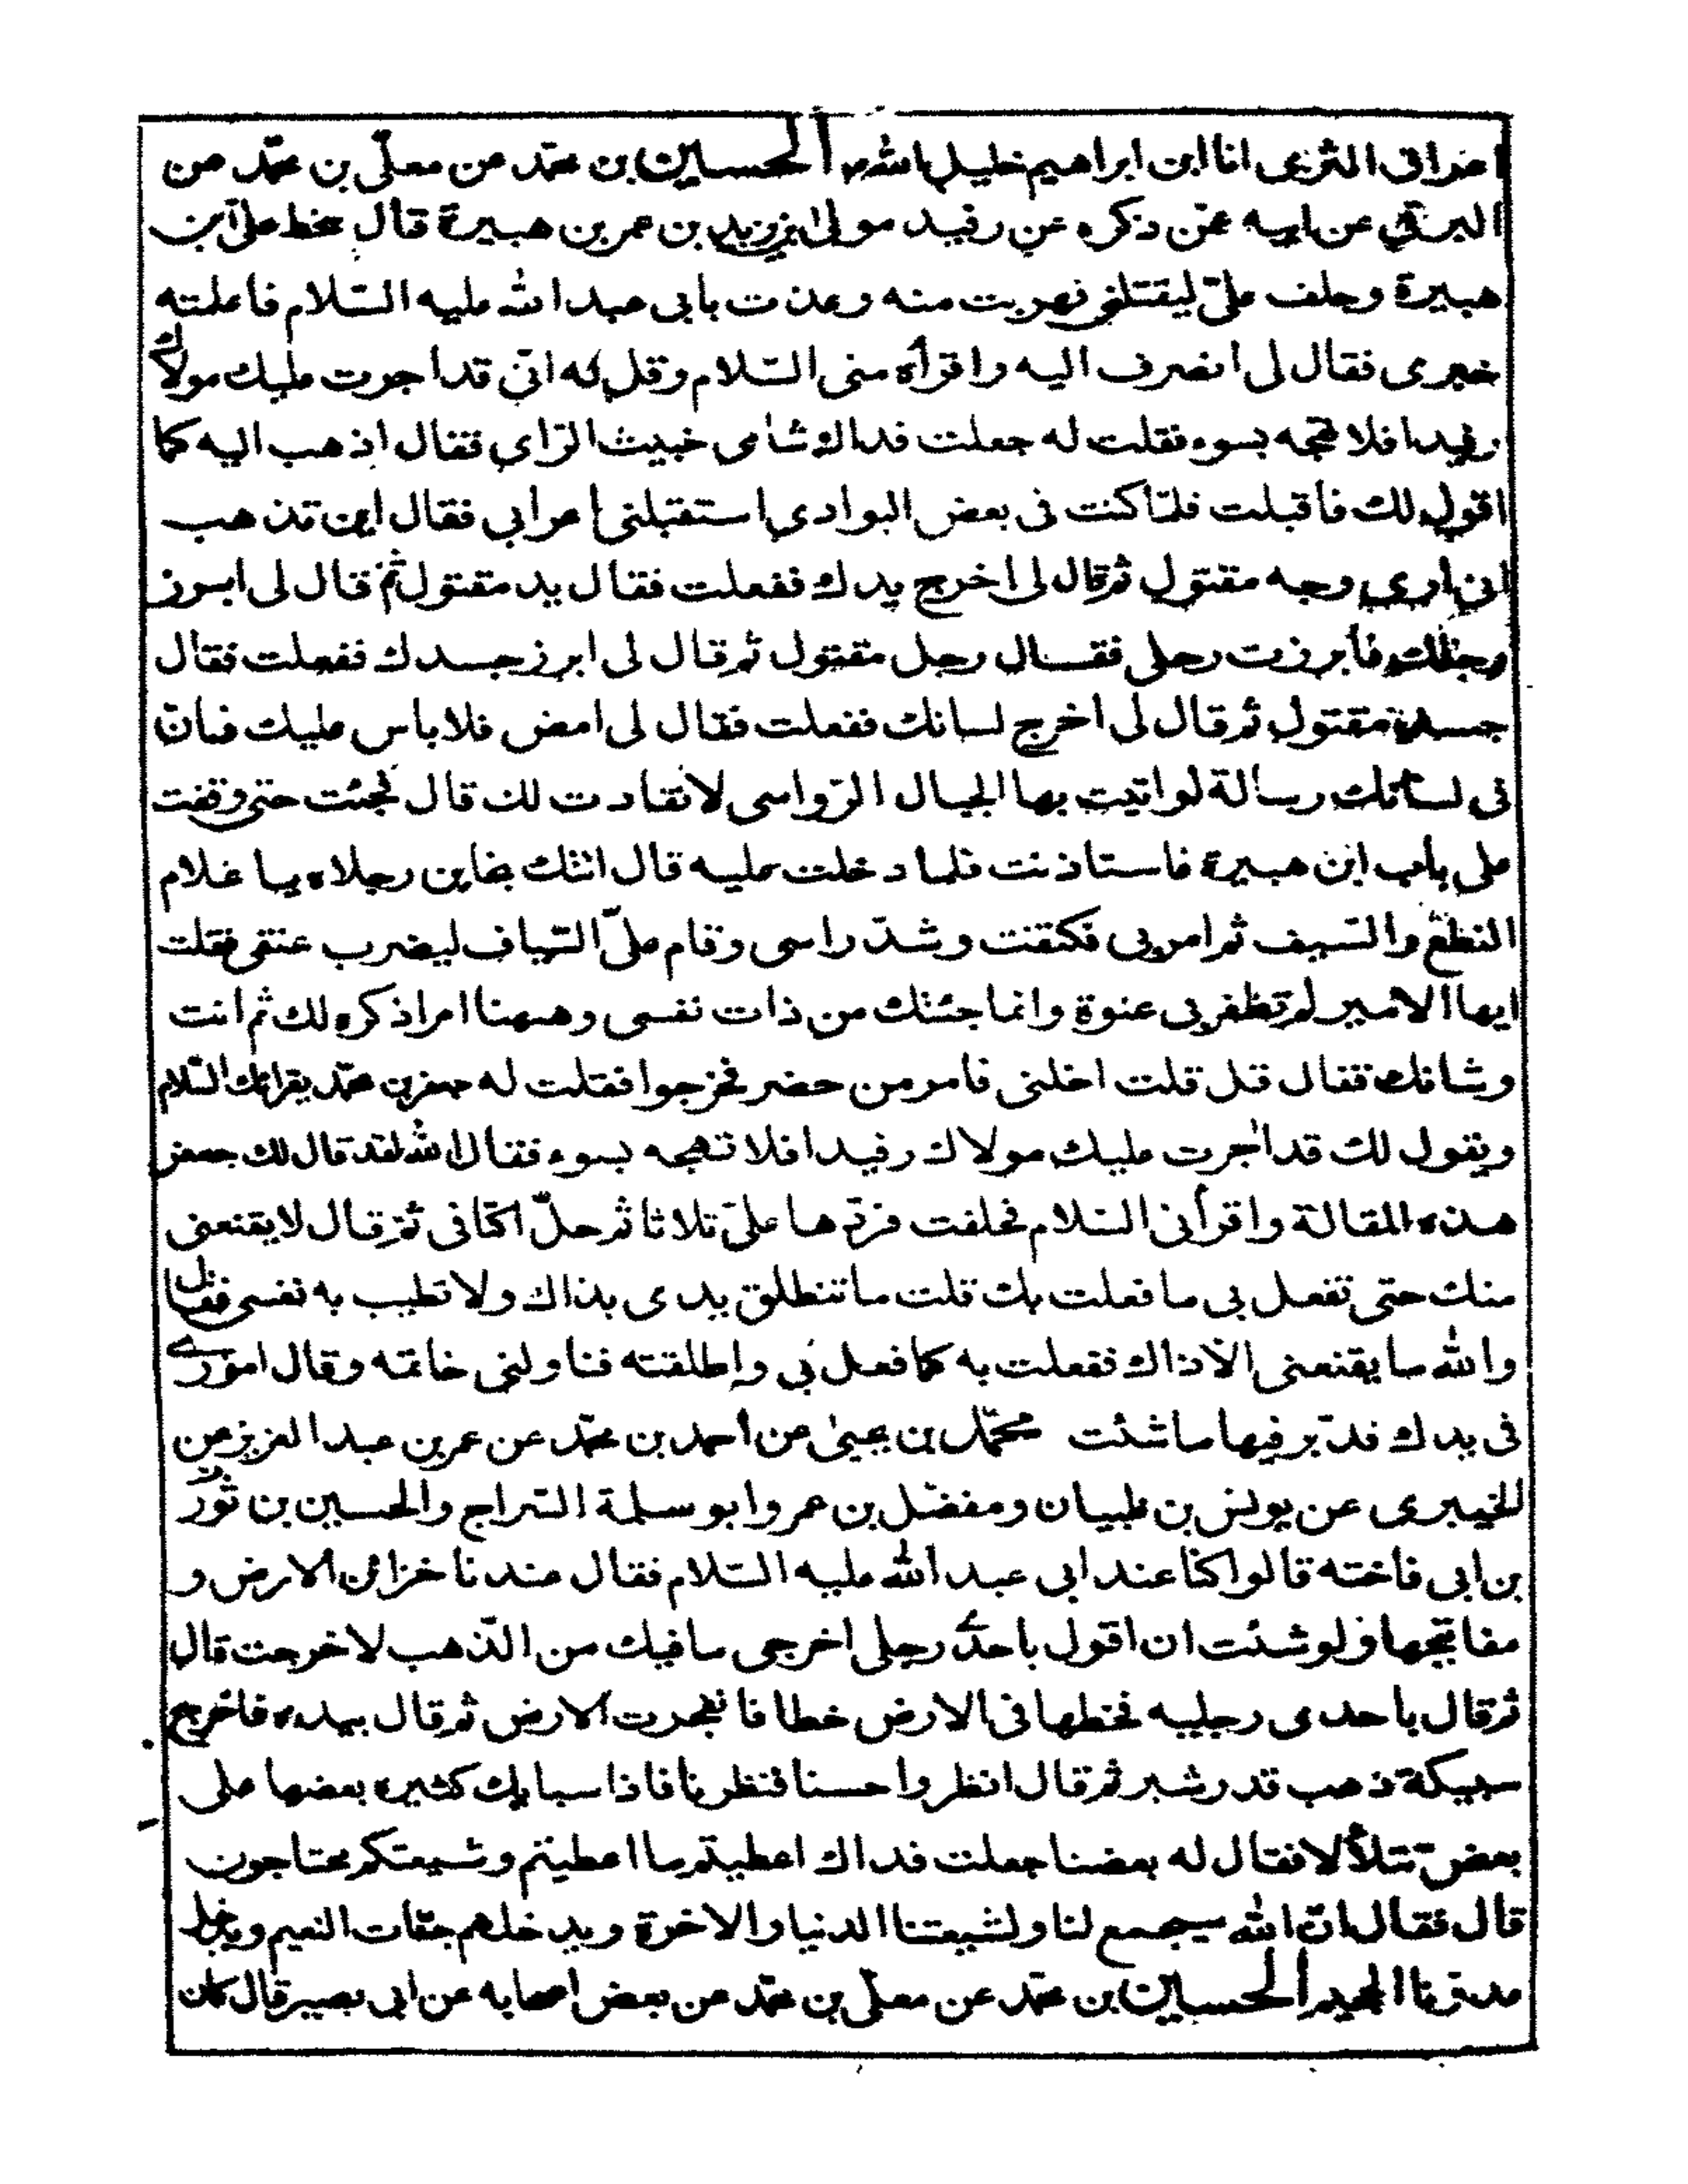 اعراقی الثری انا ابن ابراهیم خلیل الله الحسین بن محمّد عن معلّی بن محمّد عن
البرقی عن ابیه عمّن ذکره عن رفید مولی یزید بن عمر بن هبیرة قال سخط علیّ ابن
هبیرة وحلف علیّ لیقتلنی فهربت منه وعذت بابی عبد الله علیه السّلام فاعلمته
خبری فقال لی انصرف الیه واقرأه منی السّلام وقل له انّی قد اجرت علیك مولاك
رفیدا فلا تهجه بسوء فقلت له جعلت فداك شامی خبیث الرّای فقال اذهب الیه کما
اقول لك فاقبلت فلمّا کنت فی بعض البوادی استقبلنی اعرابی فقال این تذهب
انی اری وجه مقتول ثم قال لی اخرج یدك ففعلت فقال ید مقتول ثمّ قال لی ابرز
رجلك فأبرزت رجلی فقال رجل مقتول ثم قال لی ابرز جسدك ففعلت فقال
جسد مقتول ثم قال لی اخرج لسانك ففعلت فقال لی امض فلا باس علیك فانّ
فی لسانك رسالة لو اتیت بها الجبال الرّواسی لانقادت لك قال فجئت حتی وقفت
علی باب ابن هبیرة فاستاذنت فلما دخلت علیه قال اتتك بخاین رجلاه یا غلام
النطع والسّیف ثم امر بی فکتفت وشدّ راسی وقام علیّ السّیاف لیضرب عنقی فقلت
ایها الامیر لم تظفر بی عنوة وانما جئتك من ذات نفسی وههنا امر اذکره لك ثم انت
وشانك فقال قل قلت اخلنی فامر من حضر فخرجوا فقلت له جعفر بن محمّد یقرائك السّلام
ویقول لك قد اجرت علیك مولاك رفیدا فلا تهیجه بسوء فقال الله لقد قال لك جعفر
هذه المقالة واقرأنی السّلام فحلفت فردّها علیّ ثلاثا ثم حلّ اکتافی ثم قال لا یقنعنی
منك حتی تفعل بی ما فعلت بك قلت ما تنطلق یدی بذاك ولا تطیب به نفسی فقال
والله ما یقنعنی الّا ذاك ففعلت به کما فعل بی واطلقته فناولنی خاتمه وقال اموری
فی یدك فدبّر فیها ما شئت محمّد بن یحیی عن أحمد بن محمّد عن عمر بن عبد العزیز عن
الخیبری عن یونس بن ظبیان ومفضّل بن عمر وابو سلمة السّراج والحسین بن ثویر
بن ابی فاخته قالوا کنّا عند ابی عبد الله علیه السّلام فقال عندنا خزائن الارض و
مفاتیحها ولو شئت ان اقول باحدی رجلی اخرجی ما فیك من الذّهب لاخرجت قال
ثم قال باحدی رجلیه فخطها فی الارض خطا فانفجرت الارض ثم قال بیده فاخرج
سبیکة ذهب قدر شبر ثم قال انظروا حسنا فنظرنا فاذا سبایك کثیره بعضها علی
بعض تتلألا فقال له بعضنا جعلت فداك اعطیتم ما اعطیتم وشیعتکم محتاجون
قال فقال انّ الله سیجمع لنا ولشیعتنا الدنیا والاخرة ویدخلهم جنّات النعیم ویدخل
عدوّنا الجحیم الحسین بن محمّد عن معلّی بن محمّد عن بعض اصحابه عن ابی بصیر قال کان